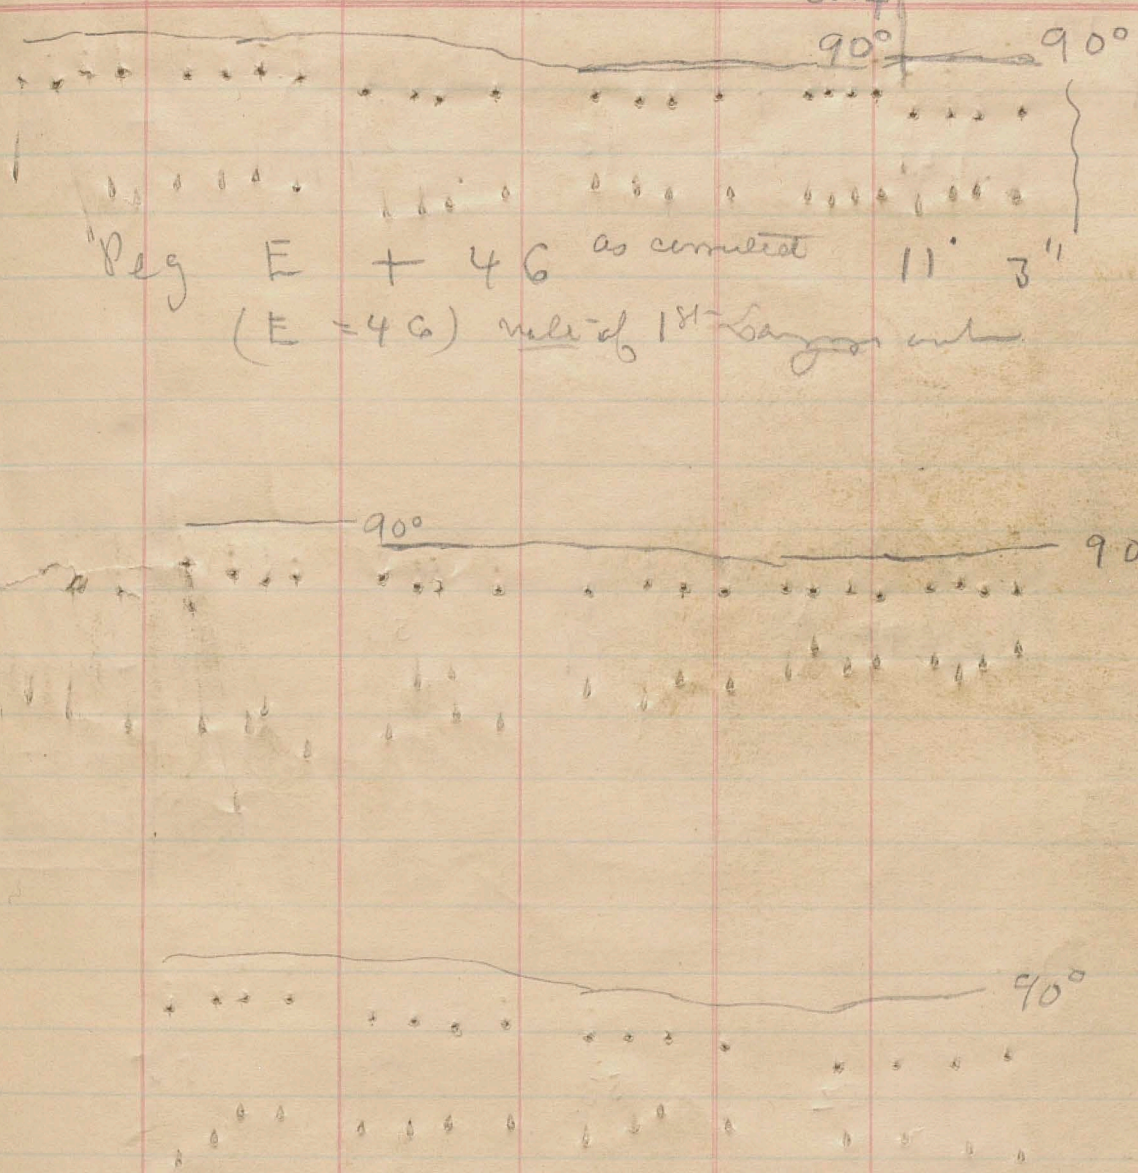 90° 90°
Peg E + 46 as corrected 11' 3"
(E = 46) of 1st
90°
90
90°